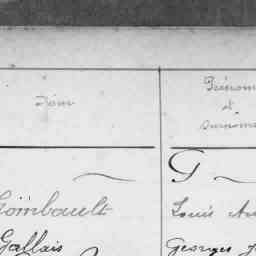 Nom
Prénoms
et
surnoms
G
Gombault
Louis
Gallais
Georges